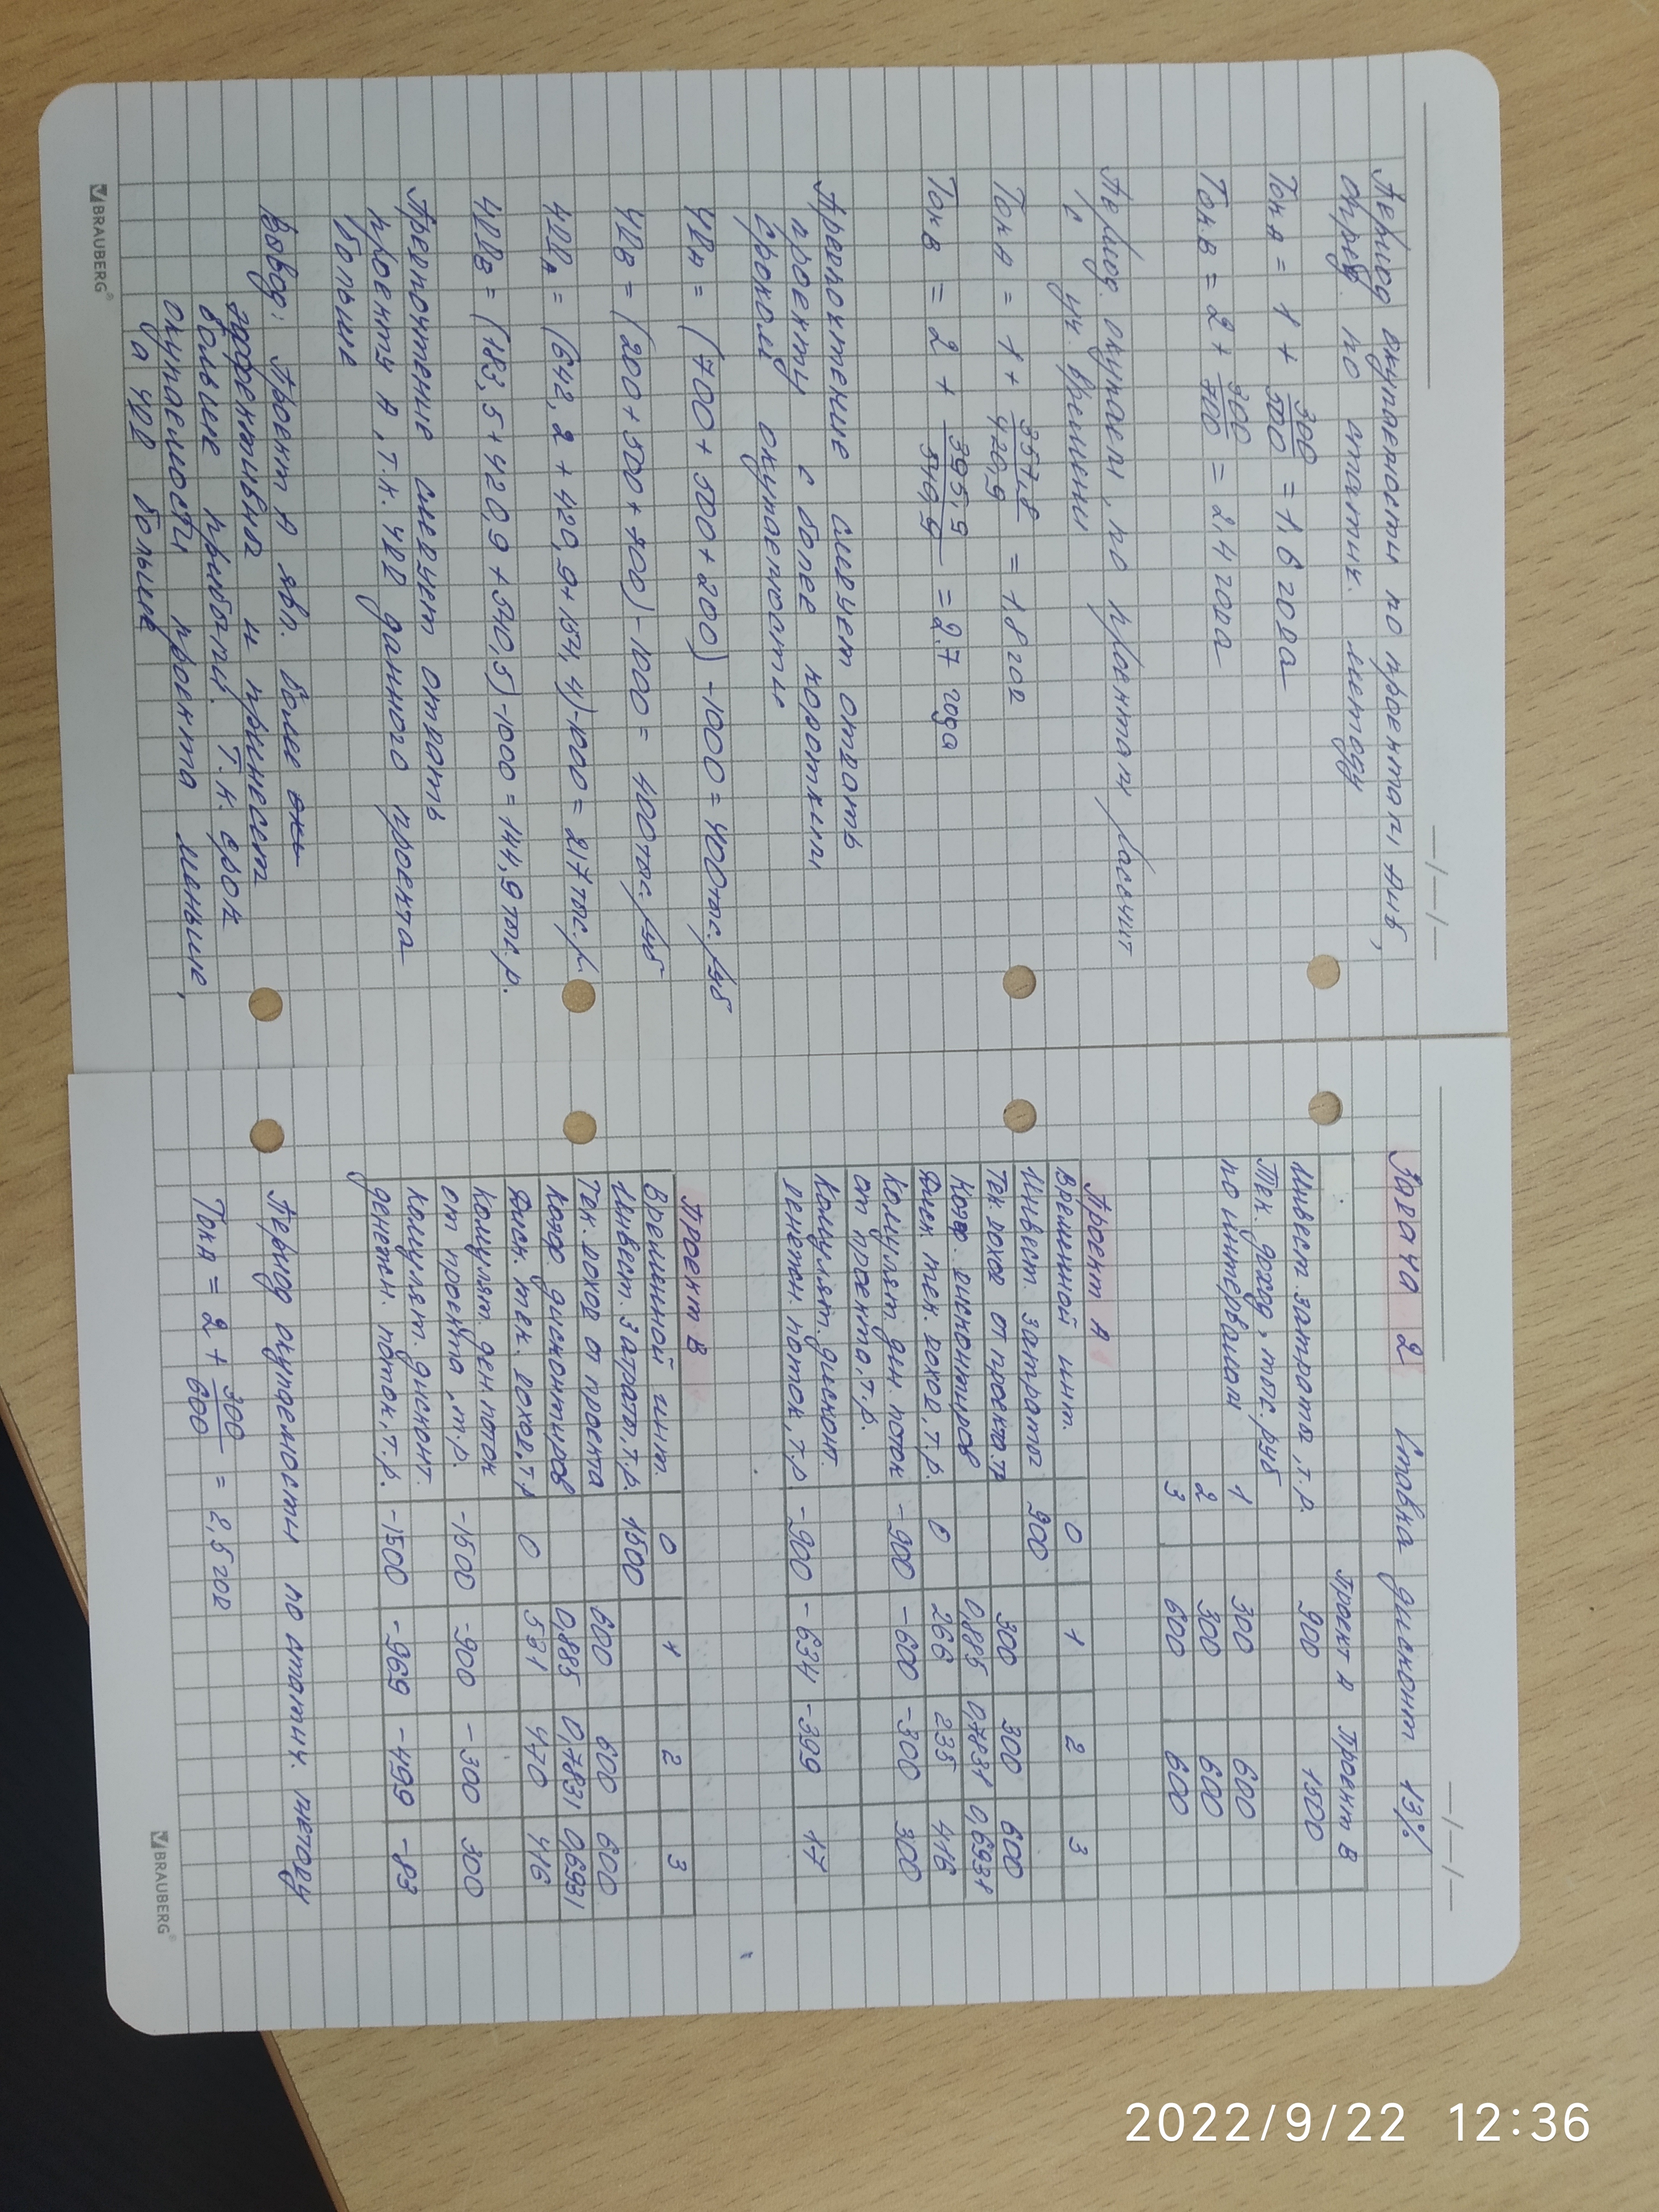 __/__/__
Период окупаемости по проектам АиБ,
опред. по статич. методу
Ток А = 1 + 300/500 = 1,6 года
Ток.В = 2 + 300/700 = 2,4 года
Период. окупаем. по проектам рассчит
с уч. времени
Ток А = 1 + 357,8/420,9 = 1,8 год
Ток В = 2 + 395,5/540,5 = 2,7 года
Предпочтение следует отдать
проекту с более коротким
сроком окупаемости
ЧД А = (700 + 500 + 200) - 1000 = 400 тыс. руб
ЧД В = (200 + 500 + 700) - 1000 = 400 тыс. руб
ЧДД А = (642,2 + 420,9 + 154,4) - 1000 = 217 тыс. р.
ЧДД В = (183,5 + 420,9 + 540,5) - 1000 = 144,9 тыс. р.
Предпочтение следует отдать
проекту А, т.к. ЧДД данного проекта
больше
Вывод: Проект А явл. более
эффективным и принесет
больше прибыли. Т.к. срок
окупаемости проекта меньше,
а ЧДД больше
BRAUBERG
__/__/__
Задача 2 Ставка дисконт 13%
Проект А Проект В
Инвест. затраты, т.р. 900 1500
Тек. доход, тыс. руб
по интервалам 1 300 600
2 300 600
3 600 600
Проект А
Временной инт. 0 1 2 3
Инвест. затраты 900
Тек. доход от проекта.тр 300 300 600
Коэф. дисконтиров 0,885 0,7831 0,6931
Диск. тек. доход, т.р. 0 266 235 416
Комулят. ден. поток -900 -600 -300 300
от проекта, т.р.
Комулят. дисконт. -900 -634 -399 17
денежн. поток, т.р.
Проект В
Временной инт. 0 1 2 3
Инвест. затраты, т.р. 1500
Тек. доход от проекта 600 600 600
Коэф. дисконтиров 0,885 0,7831 0,6931
Диск. тек. доход, т.р 0 531 470 416
Комулят. ден. поток -1500 -900 -300 300
от проекта, т.р.
Комулят. дисконт. -1500 -969 -499 -83
денежн. поток, т.р.
Период окупаемости по статич. методу
Ток А = 2 + 300/600 = 2,5 год
BRAUBERG
2022/9/22 12:36